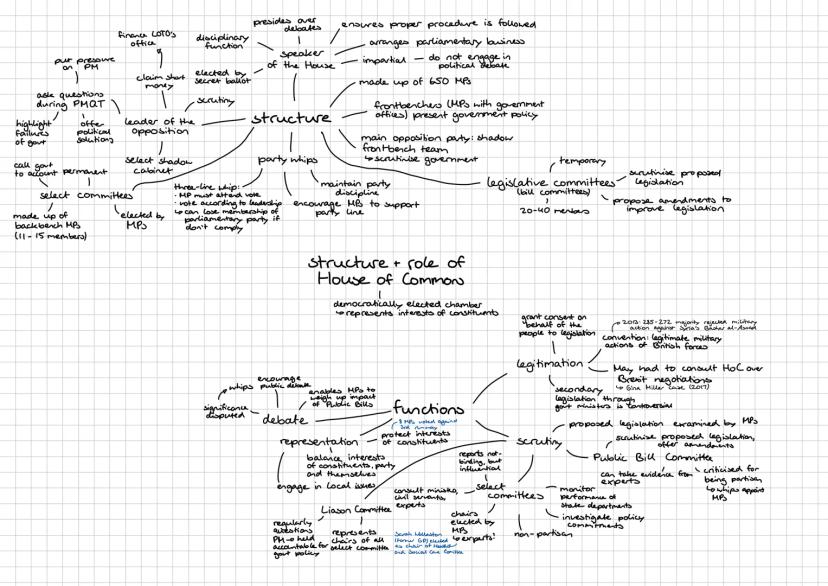 presides over
debates
ensures proper procedure is followed
finance LOTO's
office
disciplinary
function
speaker
of the House
arranges parliamentary business
impartial — do not engage in
political debate
elected by
secret ballot
put pressure
on PM
claim short
money
made up of 650 MPs
ask questions
during PMQT
scrutiny
highlight
failures
of govt
offer
political
solutions
leader of the
opposition
structure
frontbenchers (MPs with government
offices) present government policy
main opposition party: shadow
frontbench team
↳ scrutinise government
select shadow
cabinet
party whips
call govt
to account
permanent
select committees
made up of
backbench MPs
(11-15 members)
elected by
MPs
three-line whip:
· MP must attend vote
· vote according to leadership
↳ can lose membership of
parliamentary party if
don't comply
maintain party
discipline
encourage MPs to support
party line
temporary
legislative committees
(bill committees)
scrutinise proposed
legislation
20-40 members
propose amendments to
improve legislation
structure + role of
House of Commons
democratically elected chamber
↳ represents interests of constituents
grant consent on
behalf of the
people to legislation
2013: 285-272 majority rejected military
action against Syria's Bashar al-Assad
convention: legitimate military
actions of British forces
legitimation
May had to consult HoC over
Brexit negotiations
↳ Gina Miller case (2017)
secondary
legislation through
govt ministers is controversial
encourage
public debate
whips
significance
disputed
debate
enables MPs to
weigh up impact
of Public Bills
functions
8 MPs voted against
3rd runway
protect interests
of constituents
representation
balance interests
of constituents, party
and themselves
engage in local issues
proposed legislation examined by MPs
scrutiny
scrutinise proposed legislation,
offer amendments
Public Bill Committee
can take evidence from
experts
criticised for
being partisan,
↳ whips appoint
MPs
reports not-
binding, but
influential
select
committees
consult ministers,
civil servants,
experts
monitor
performance of
state departments
investigate policy
commitments
non-partisan
chairs
elected by
MPs
↳ experts!
Liason Committee
regularly
questions
PM → held
accountable for
govt policy
represents
chairs of all
select committee
Sarah Wollaston
(former GP) elected
as chair of Health
and Social Care Comittee